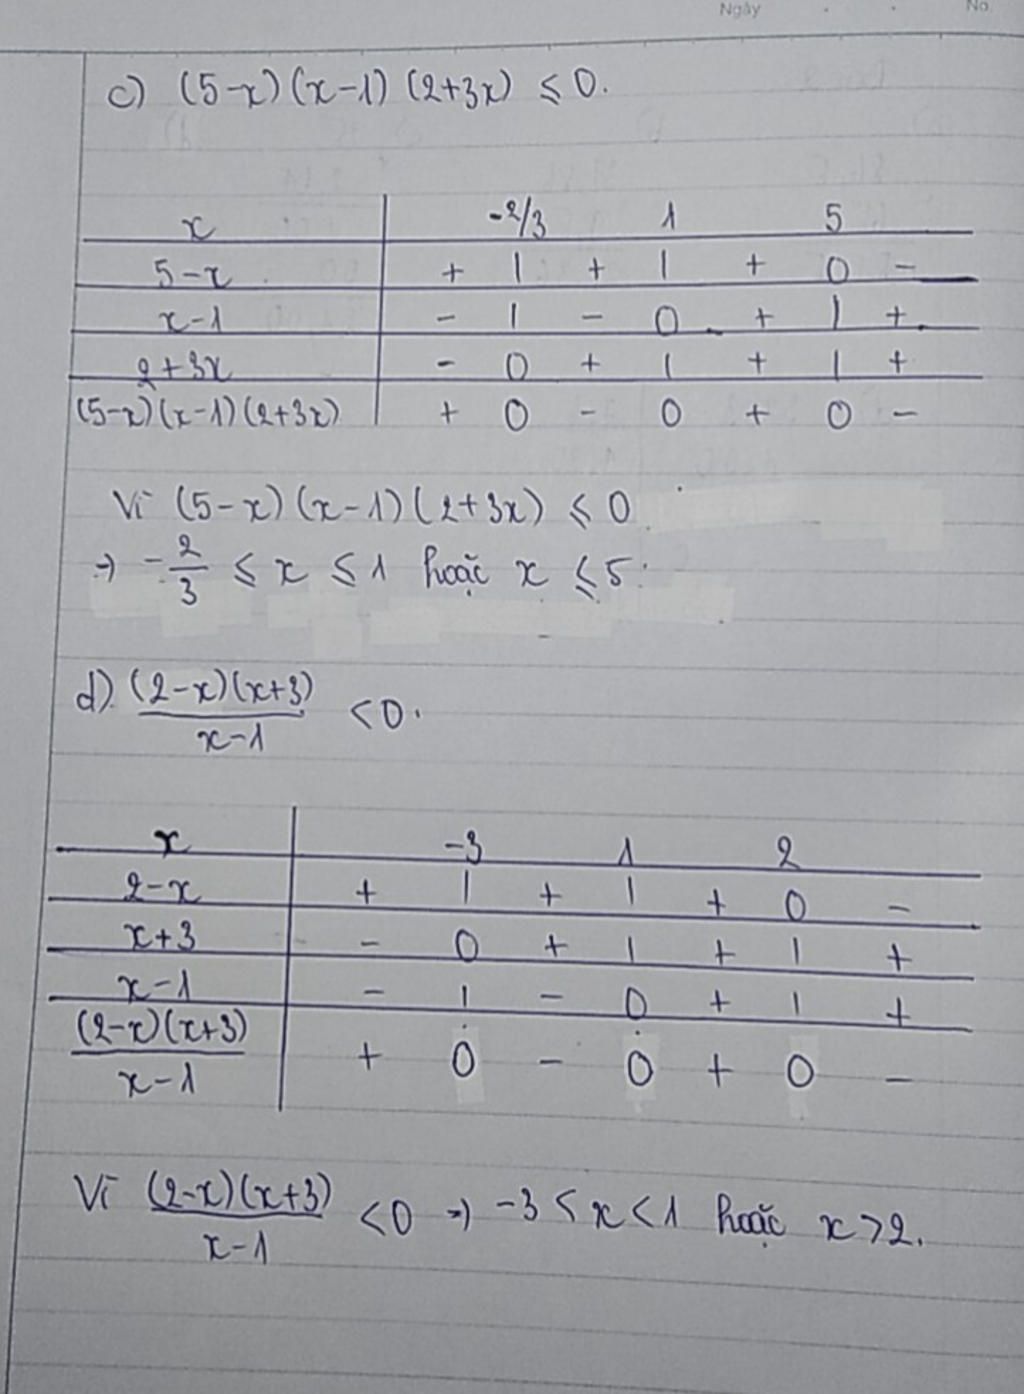 Ngày No.
c) (5-x)(x-1)(2+3x) ≤ 0.
x -2/3 1 5
5-x + | + | + 0 -
x-1 - | - 0 + | +
2+3x - 0 + | + | +
(5-x)(x-1)(2+3x) + 0 - 0 + 0 -
Vì (5-x)(x-1)(2+3x) ≤ 0.
⇒ -2/3 ≤ x ≤ 1 hoặc x ≤ 5.
d) (2-x)(x+3)/(x-1) < 0.
x -3 1 2
2-x + | + | + 0 -
x+3 - 0 + | + | +
x-1 - | - 0 + | +
(2-x)(x+3)/(x-1) + 0 - 0 + 0 -
Vì (2-x)(x+3)/(x-1) < 0 ⇒ -3 < x < 1 hoặc x > 2.